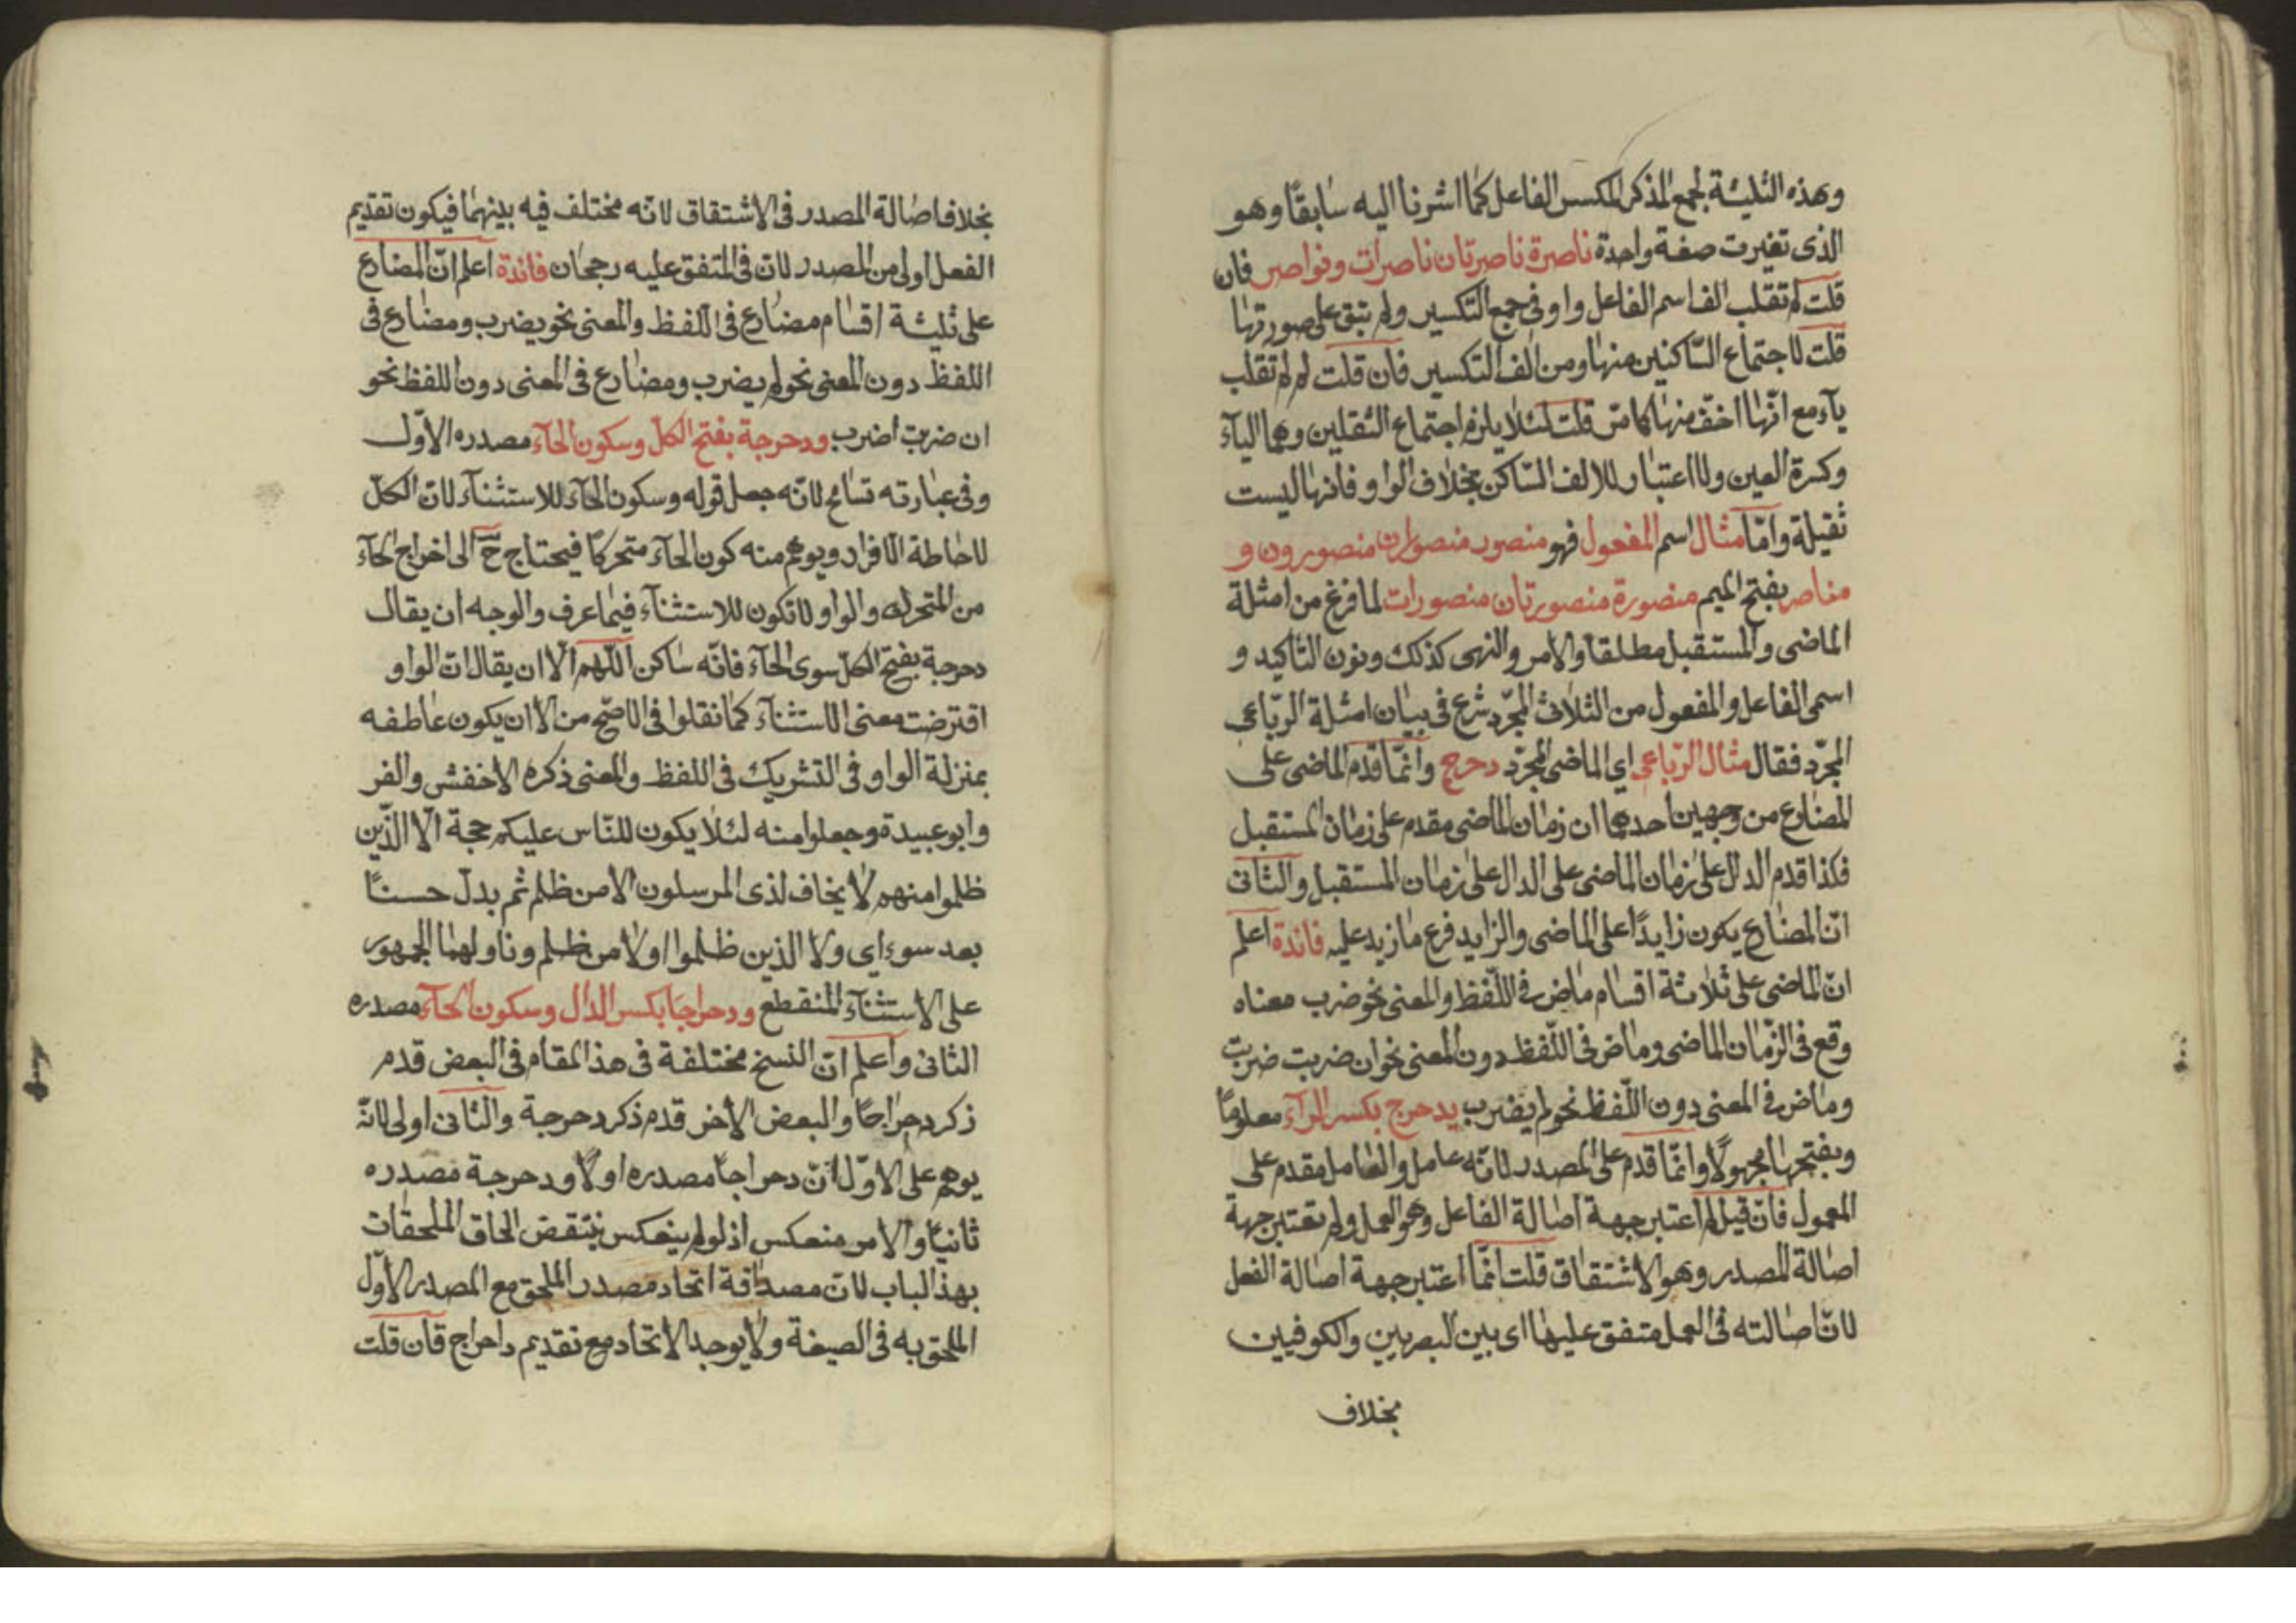 وهذه الثليثة لجمع المذكر المكسر الفاعل كما اشرنا اليه سابقا وهو
الذى تغيرت صفة واحدة ناصرة ناصرتان ناصرات ونواصر فان
قلت لم تقلب الف اسم الفاعل واو فى جمع التكسير ولم تبق على صورتها
قلت لاجتماع الساكنين منها ومن الف التكسير فان قلت لم لم تقلب
يآء مع انّها اخفّ منها كما مرّ قلت لئلا يلزم اجتماع الثقلين وهما اليآء
وكسرة العين ولا اعتبار للالف السّاكن بخلاف الواو فانها ليست
ثقيلة وامّا مثال اسم المفعول فهو منصور منصوران منصورون و
مناصر بفتح الميم منصورة منصورتان منصورات لما فرغ من امثلة
الماضى والمستقبل مطلقا والامر والنهى كذلك ونون التاكيد و
اسمى الفاعل والمفعول من الثلاث المجرّد شرع فى بيان امثلة الرّباعى
المجرّد فقال مثال الرّباعى اي الماضى المجرّد دحرج وانّما قدم الماضى على
المضارع من وجهين احدهما ان زمان الماضى مقدم على زمان المستقبل
فكذا قدم الدال على زمان الماضى على الدال على زمان المستقبل والثانى
انّ المضارع يكون زايدًا على الماضى والزايد فرع ما زيد عليه فائدة اعلم
انّ الماضى على ثلاثة اقسام ماض فى اللّفظ والمعنى نحو ضرب معناه
وقع فى الزّمان الماضى وماض فى اللّفظ دون المعنى نحو ان ضربت ضربت
وماض فى المعنى دون اللّفظ نحو لم يضرب يدحرج بكسر الرآء معلومًا
وبفتحها مجهولًا وانّما قدم على المصدر لانّه عامل والعامل مقدم على
المعمول فان قيل لم اعتبر جهة اصالة الفاعل وهو العمل ولم تعتبر جهة
اصالة المصدر وهو الاشتقاق قلت انّما اعتبر جهة اصالة الفعل
لانّ اصالته فى العمل متفق عليها اى بين البصريين والكوفيين
بخلاف
بخلاف اصالة المصدر فى الاشتقاق لانّه مختلف فيه بينهما فيكون تقديم
الفعل اولى من المصدر لان فى المتفق عليه رجحان فائدة اعلم انّ المضارع
على ثليثة اقسام مضارع فى اللفظ والمعنى نحو يضرب ومضارع فى
اللفظ دون المعنى نحو لم يضرب ومضارع فى المعنى دون اللفظ نحو
ان ضربت اضرب ودحرجة بفتح الكلّ وسكون الحآء مصدره الاوّل
وفى عبارته تسامح لانّه جعل قوله وسكون الحآء للاستثنآء لانّ الكلّ
لاحاطة الافراد ويوهم منه كون الحآء متحركًا فيحتاج ح الى اخراج الحآء
من المتحرك والواو لا تكون للاستثنآء فيما عرف والوجه ان يقال
دحرجة بفتح الكل سوى الحآء فانّه ساكن اللّهم الّا ان يقال انّ الواو
اقترضت معنى الاستثنآء كما نقلوا فى الاصّح من الا ان يكون عاطفه
بمنزلة الواو فى التشريك فى اللفظ والمعنى ذكره الاخفش والفر
وابو عبيدة وجعلوا منه لئلا يكون للنّاس عليكم حجة الّا الذّين
ظلموا منهم لا يخاف لذى المرسلون الا من ظلم ثم بدل حسنًا
بعد سوء اى ولا الذين ظلموا اولا من ظلم وناولهما الجمهور
على الاستثنآء المنقطع ودحراجًا بكسر الدال وسكون الحآء مصدره
الثانى واعلم انّ النسخ مختلفة فى هذا المقام فى البعض قدم
ذكر دحراجًا والبعض الاخر قدم ذكر دحرجة والثانى اولى لانّه
يوهم على الاوّل انّ دحراجًا مصدره اولًا ودحرجة مصدره
ثانيًا والامر منعكس اذ لو لم ينعكس ينتقض الحاق الملحقات
بهذا الباب لانّ مصداقة اتحاد مصدر الملحق مع المصدر الاوّل
الملحق به فى الصيغة ولا يوجد الاتحاد مع تقديم داحراج فان قلت